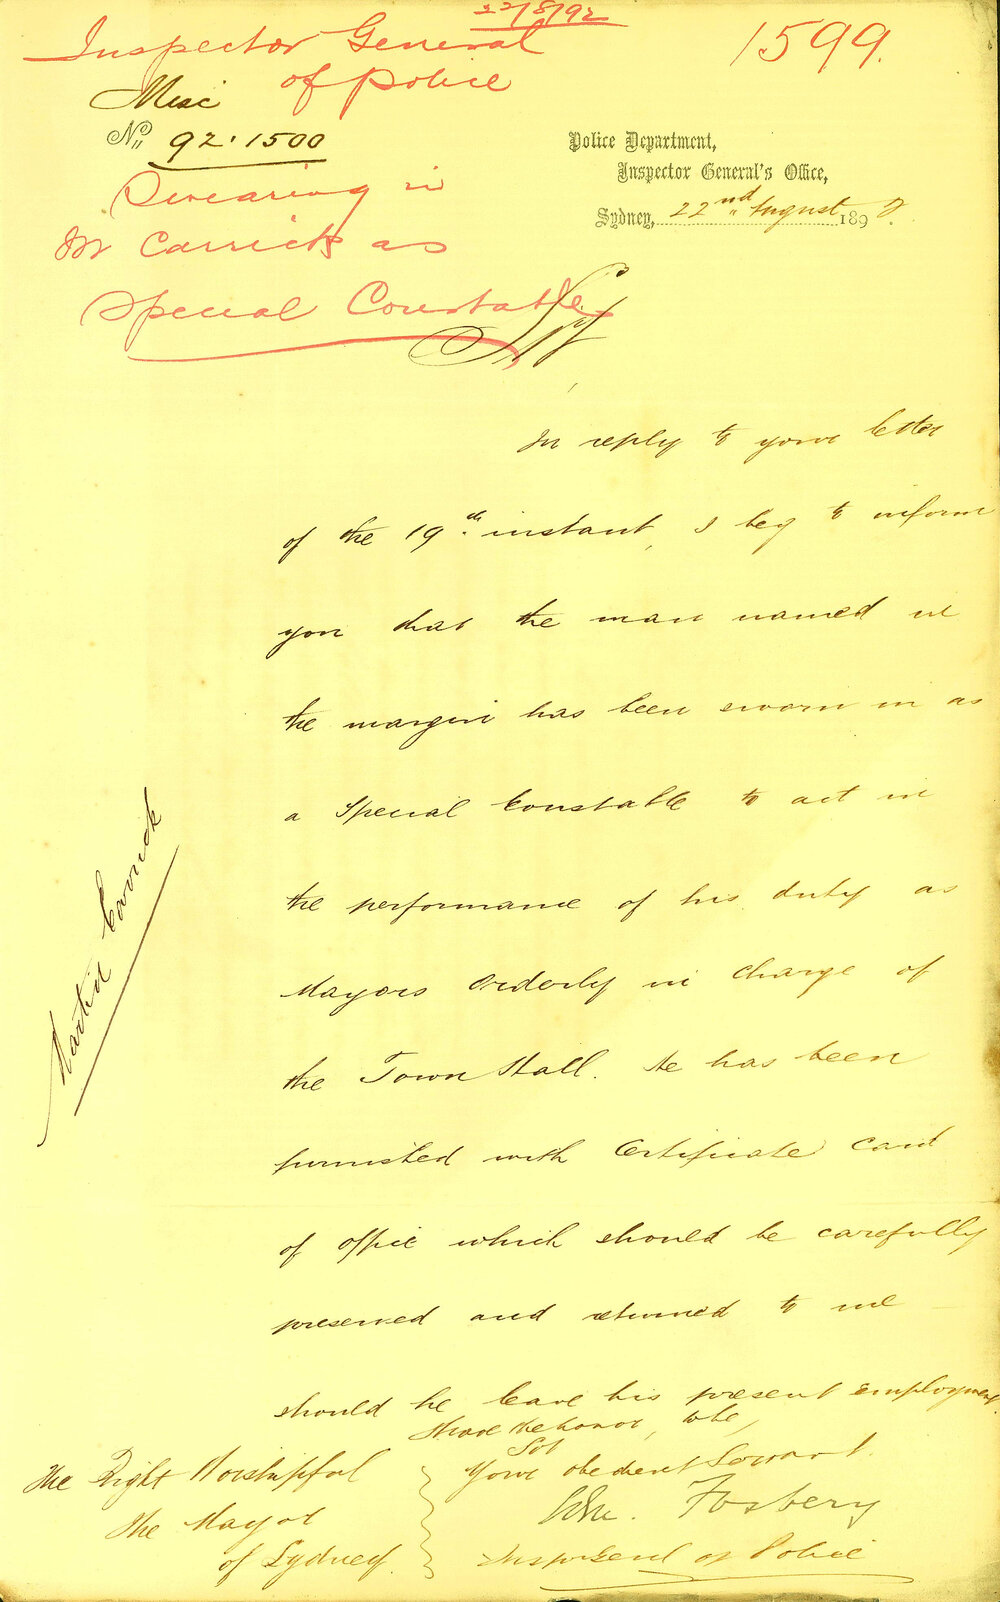 22/8/92
Inspector General
of Police
1599.
Misc
No. 92.1500
Police Department,
Inspector General's Office,
Sydney, 22nd August 1892.
Swearing in
M Carrick as
Special Constable
Sir
In reply to your letter
of the 19th instant, I beg to inform
you that the man named in
the margin has been sworn in as
a Special Constable to act in
the performance of his duty as
Mayors Orderly in charge of
the Town Hall. He has been
furnished with Certificate Card
of office which should be carefully
preserved and returned to me
should he leave his present employment
Martin Carrick
I have the honor to be,
Sir
Your obedient Servant.
Edm. Fosbery
Insp. Genl of Police
The Right Worshipful
The Mayor
of Sydney